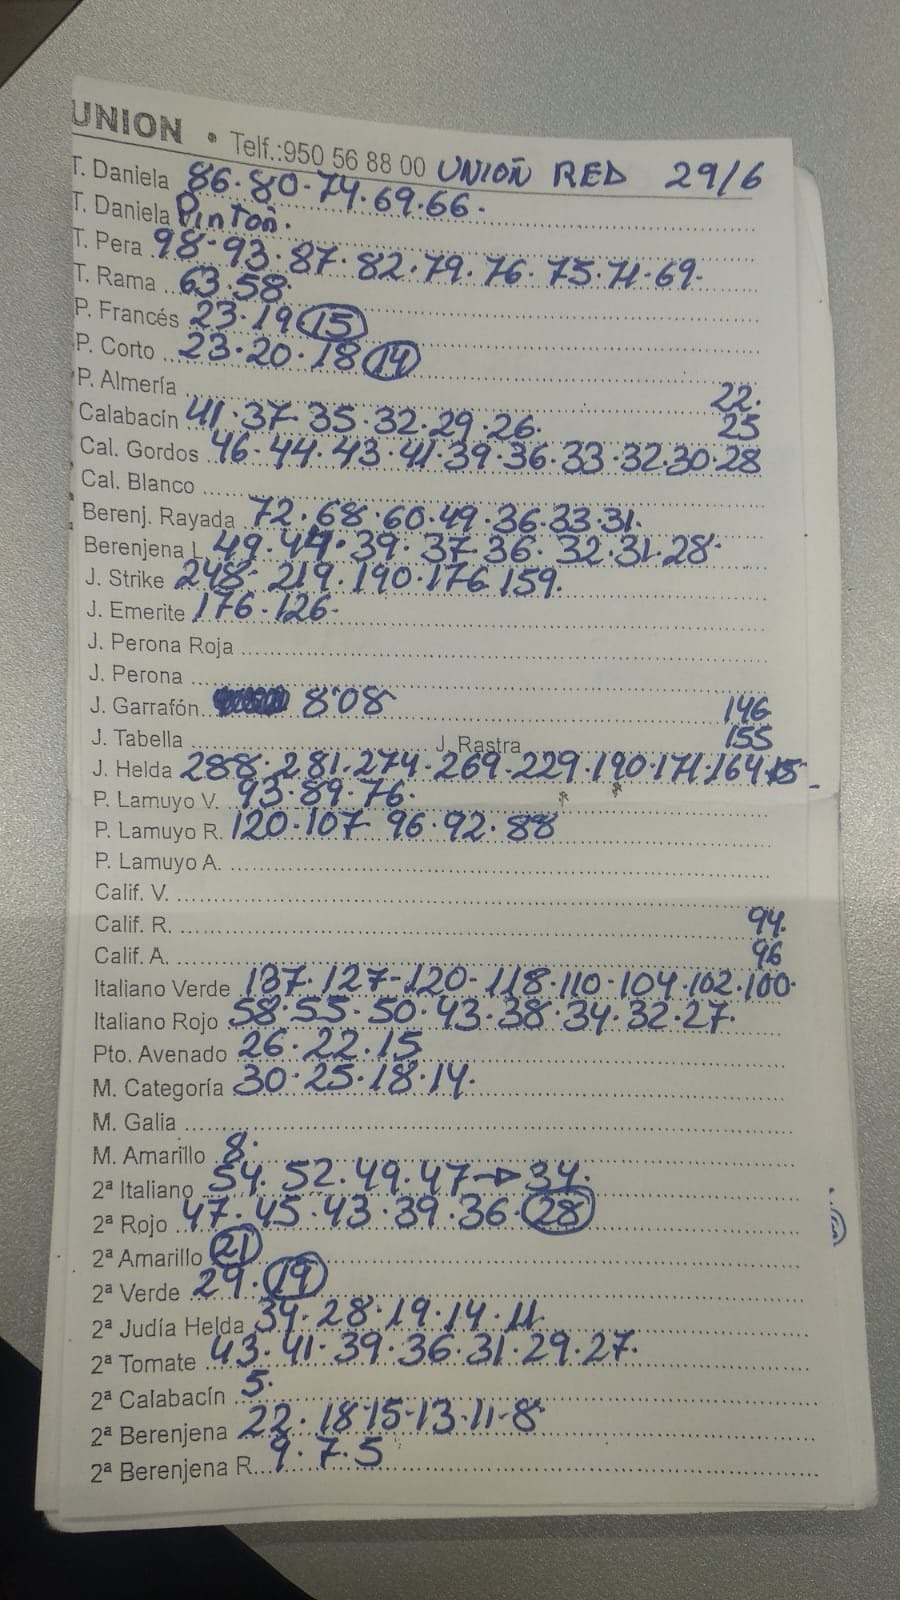 UNION • Telf.:950 56 88 00 UNIOÑ RED 29/6
T. Daniela 86.80-74.69.66.
T. Daniela Pintoñ.
T. Pera 98-93.87.82.79.76.75.71.69.
T. Rama 63.58.
P. Francés 23.19 (15)
P. Corto 23.20.18 (14)
P. Almería 22.
Calabacín 41.37 35.32.29.26. 25
Cal. Gordos 46-44.43.41.39.36.33.32.30.28
Cal. Blanco
Berenj. Rayada 72.68.60.49.36.33.31.
Berenjena L. 49.44.39.37 36.32.31.28.
J. Strike 248.219.190.176 159.
J. Emerite 176.126.
J. Perona Roja
J. Perona
J. Garrafón 8'08 146
J. Tabella J. Rastra 155
J. Helda 288.281.274.269.229.190.171.164.15
P. Lamuyo V. 93.89.76.
P. Lamuyo R. 120.107 96.92.88
P. Lamuyo A.
Calif. V.
Calif. R. 94.
Calif. A. 96
Italiano Verde 137.127-120-118.110.104.102.100.
Italiano Rojo 58.55.50.43.38.34.32.27.
Pto. Avenado 26.22.15
M. Categoría 30.25.18.14.
M. Galia
M. Amarillo 8.
2ª Italiano 54.52.49.47→34.
2ª Rojo 47.45.43.39.36.(28)
2ª Amarillo (21)
2ª Verde 29.(19)
2ª Judía Helda 34.28.19.14.11
2ª Tomate 43.41.39.36.31.29.27.
2ª Calabacín 5.
2ª Berenjena 22.18 15-13.11-8
2ª Berenjena R. 9.7.5